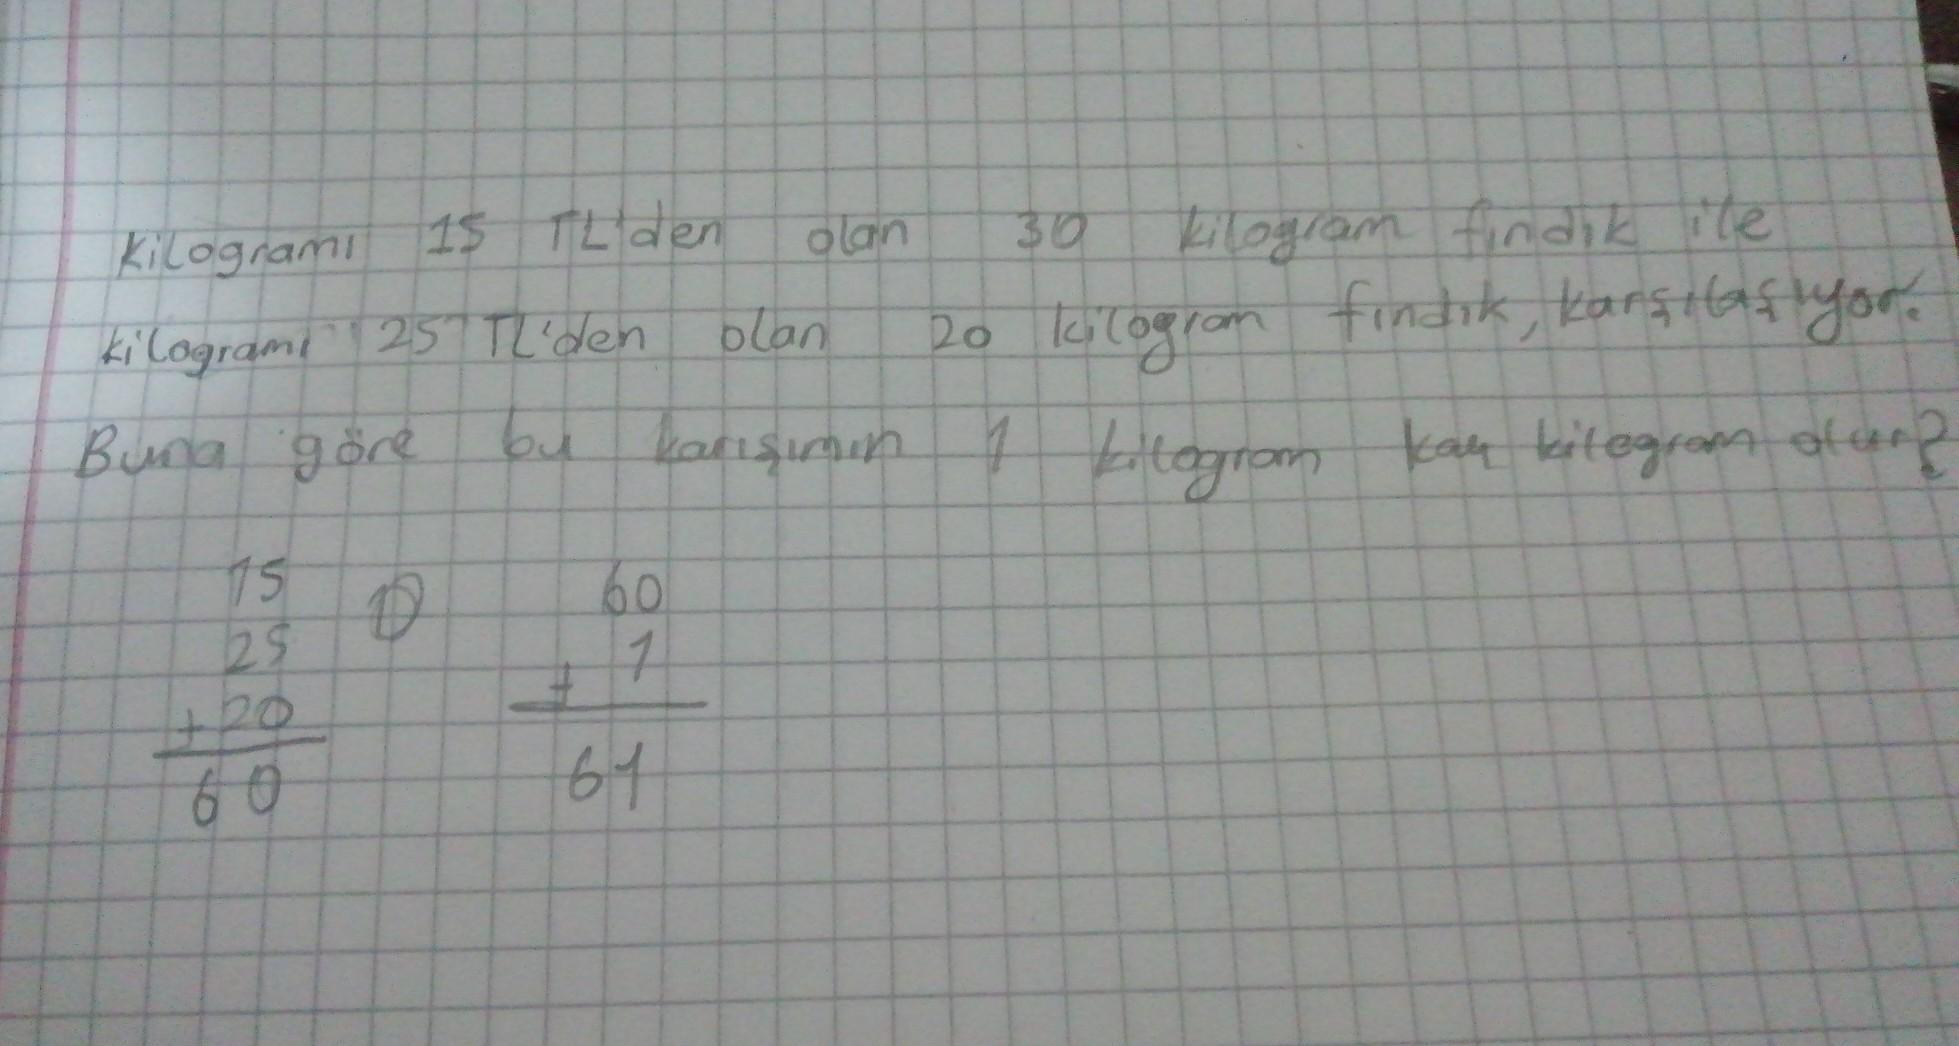 Kilogramı 15 TL'den olan 30 kilogram fındık ile
kilogramı 25 TL'den olan 20 kilogram fındık, karşılaşıyor.
Buna göre bu karışımın 1 kilogram kaç kilegram olur?
15
25
+20
60
①
60
+ 1
61